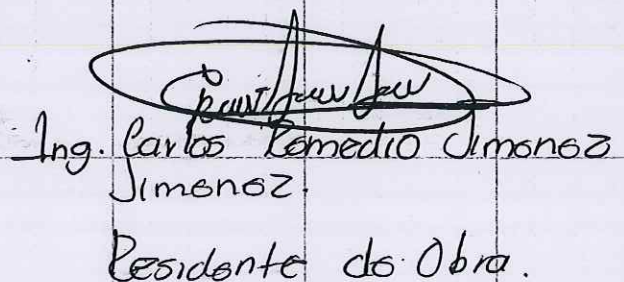 Ing. Carlos Remedio Jimenez
Jimenez.
Residente de Obra.